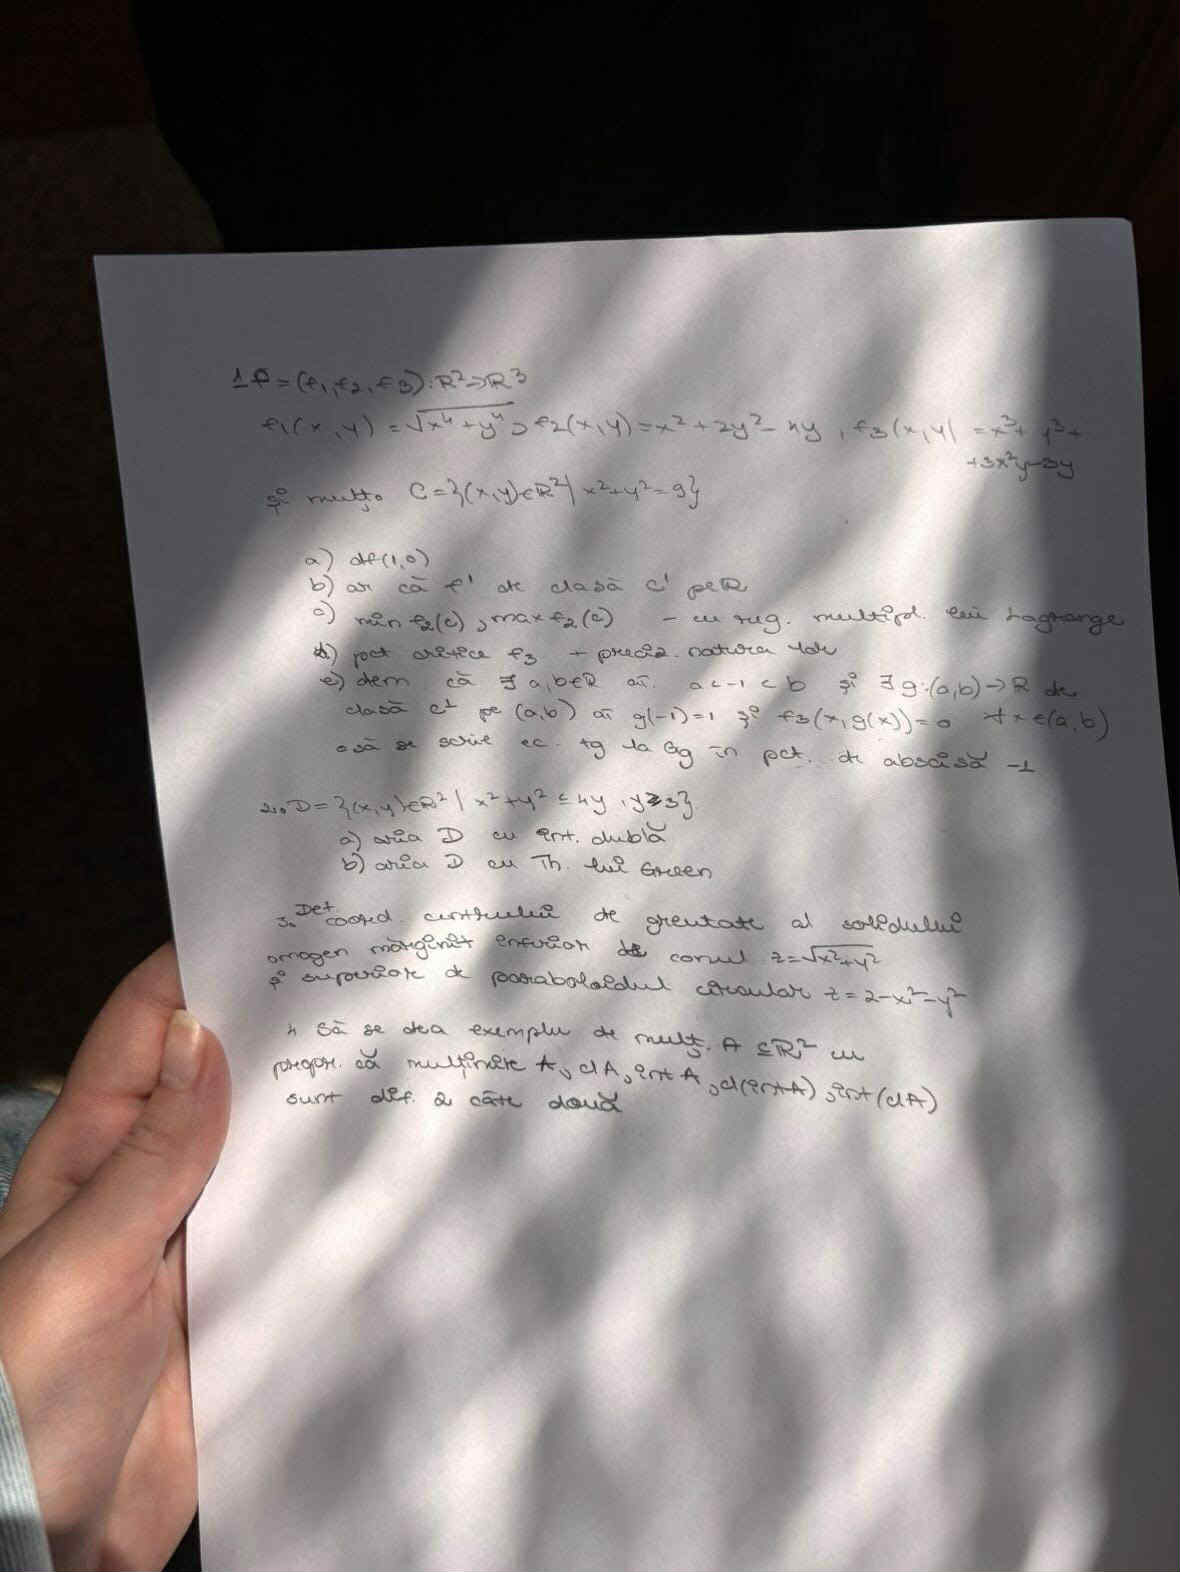 1 f=(f1,f2,f3):R²→R³
f1(x,y)=√x⁴+y⁴, f2(x,y)=x²+2y²-4y, f3(x,y)=x³+y³+
+3x²y-3y
și mulț. C={(x,y)∈R²| x²+y²=9}
a) df(1,0)
b) ar că f1 de clasă C¹ pe R
c) min f2(C), max f2(C) - cu reg. multipl. lui Lagrange
d) pct critice f3 + preciz. natura lor
e) dem că ∃ a,b∈R aî. a<-1<b și ∃ g:(a,b)→R de
clasă C¹ pe (a,b) aî g(-1)=1 și f3(x,g(x))=0 ∀x∈(a,b)
să se scrie ec. tg la Gg în pct. de abscisă -1
2. D={(x,y)∈R²| x²+y²≤4y, y≥3}
a) aria D cu int. dublă
b) aria D cu Th. lui Green
3. Det. coord. centrului de greutate al solidului
omogen mărginit inferior de conul z=√x²+y²
și superior de paraboloidul circular z=2-x²-y²
4 Să se dea exemplu de mulț. A⊆R² cu
propr. că mulțimile A, clA, intA, cl(intA), int(clA)
sunt dif. 2 câte două